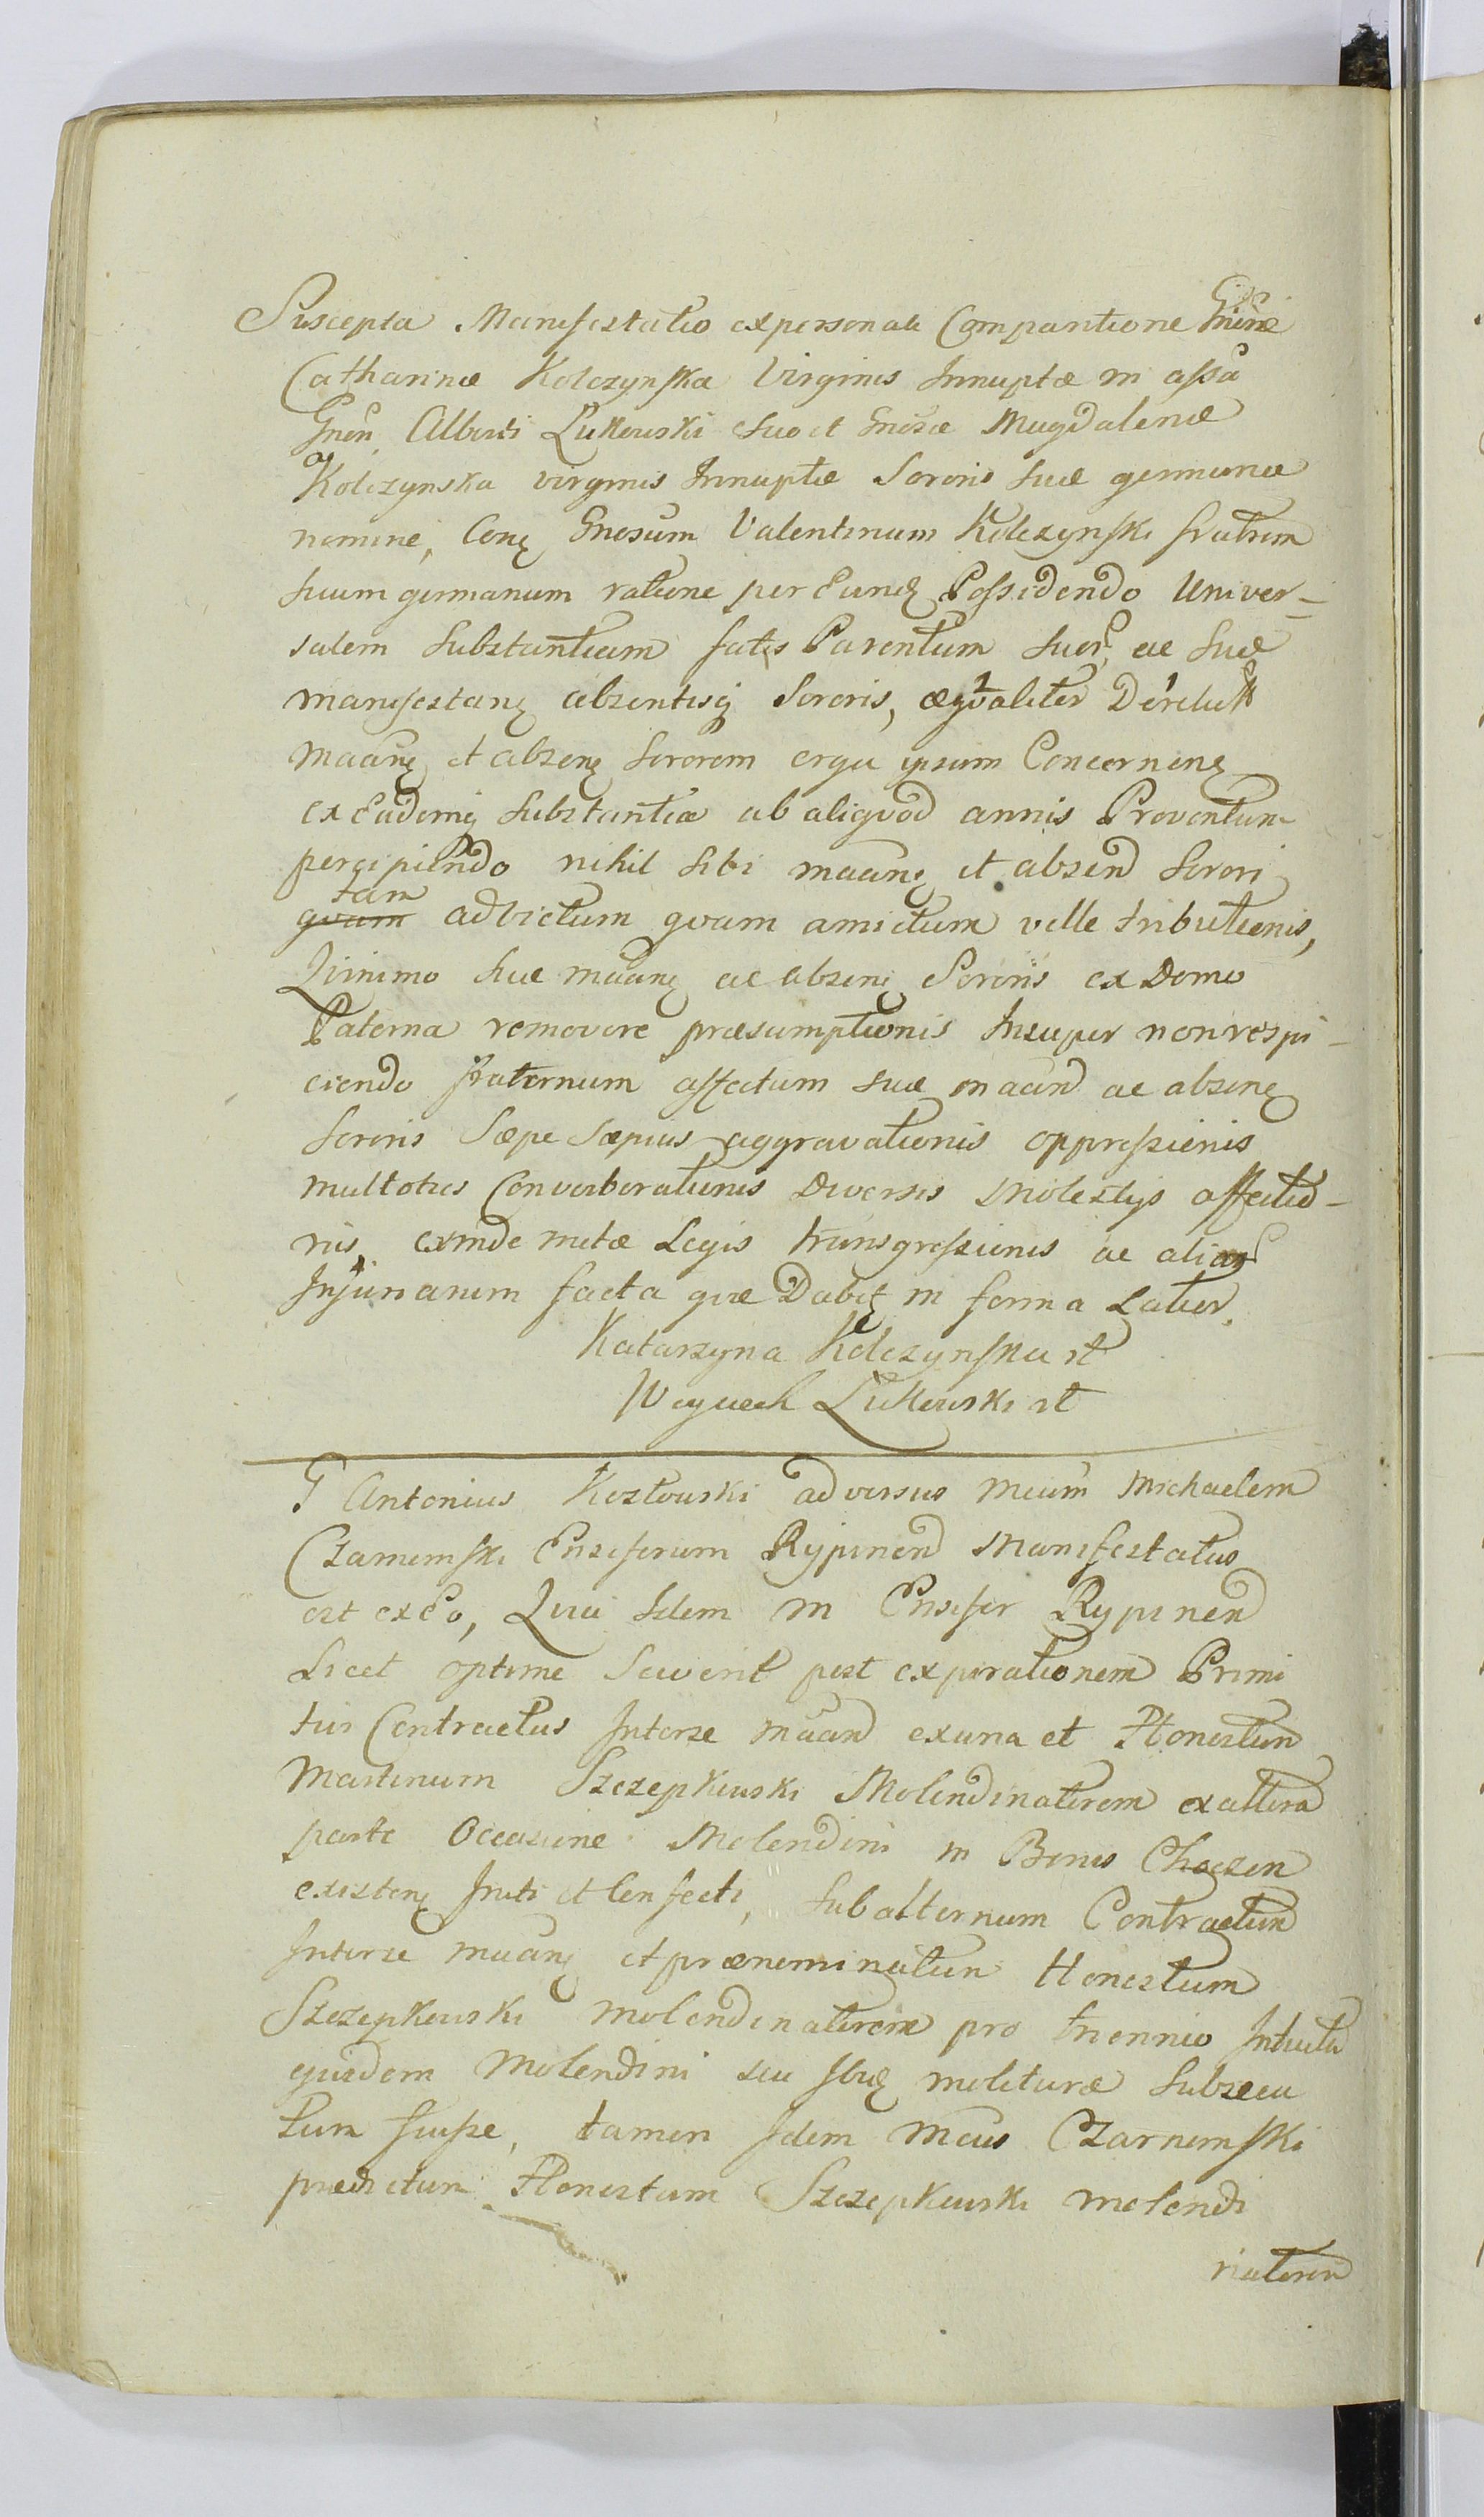 Suscepta Manifestatio ex personali Comparitione Gnosæ
Catharinæ Kolczynska Virginis Innuptæ in assa
Gnosi Alberti Lukowski suo et Gnosæ Magdalenæ
Kolczynska virginis Innuptæ Sororis suæ germanæ
nomine, Conę Gnosum Valentinum Kolczynski fratrem
suum germanum ratione per Eundę Possidendo Univer-
salem Substantiam fatis Parentum suor, ac suæ
manifestanę absentisq Sororis, æqvaliter Derelictt
maanę et absenę Sororem erga ipsum Concernenę
ex Eademq Substantia ab aliqvod annis Proventum
percipiendo nihil sibi maanę et absend Sorori
tam
qvam ad victum qvam amictum velle tributionis,
Qvinimo suæ maanę ac absenę Soronis ex Domo
Paterna removere præsumptionis Insuper non respi-
ciendo fraternum affectum suæ maand ac absenę
Sororis Sæpe Sæpius aggravationis oppressionis
multoties Converberationis Diversis Molestijs affectio-
nis, exinde metæ Legis transgressionis ac aliar
Injuriarum facta qvæ Dabit in forma Latior.
Katarzyna Kolczynska rt
Woyciech Lukowski rt
G Antonius Kozłowski adversus Mcum Michaelem
Czarnemski Ensiferum Rypinen Manifestatus
est ex Eo, Qvia Idem M Ensifer Rypinen
Licet optime Sciverit post expirationem Primi
tus Contractus Interse maand ex una et Honestum
Martinum Szczepkowski Molendinatorem ex altera
parte Occasione Molendini in Bonis Choczen
existenę Initi et Confecti, Subalternum Contractum
Interse maanę et prænominatum Honestum
Szczepkowski Molendinatorem pro triennio Intuitu
ejusdem Molendini seu molituræ Subsecu
tum fuisse, tamen Idem Mcus Czarnemski
prædictum Honestum Szczepkowski Molendi
natorem